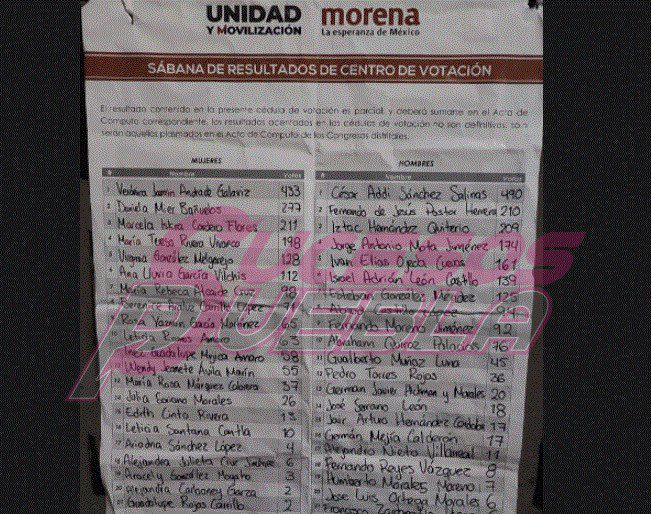 UNIDAD
Y MOVILIZACIÓN
morena
La esperanza de México
SÁBANA DE RESULTADOS DE CENTRO DE VOTACIÓN
El resultado contenido en la presente cédula de votación es parcial, y deberá sumarse en el Acta de
Cómputo correspondiente, los resultados asentados en las cédulas de votación no son definitivos, solo
serán aquellos plasmados en el Acta de Cómputo de los Congresos distritales.
MUJERES
# Nombre Votos
1 Verónica Jazmín Andrade Galaviz 433
2 Daniela Mier Bañuelos 277
3 Marcela Cordero Flores 211
4 María Teresa Rivera Vivanco 198
5 Virginia González Melgarejo 128
6 Ana Lluvia García Vilchis 112
7 María Rebeca Cruz 98
8 Berenice Carrillo López
9 Rosa Yazmín García Martínez 65
10 Leticia Reyes Amaro 63
11 Inez Guadalupe Mujica Amaro 58
12 Wendy Jeanete Ávila Marín 55
13 María Rosa Márquez Cabrera 37
14 Julia Soriano Morales 26
15 Edith Cinto Rivera 13
16 Leticia Santana 10
17 Ariadna Sánchez López 4
18 Alejandra Julieta Cruz 6
19 Aracely González 3
20 Alejandra Carboney Garza 2
21 Guadalupe Rojas Carrillo 2
HOMBRES
# Nombre Votos
1 César Addi Sánchez Salinas 490
2 Fernando de Jesus Pastor Herrera 210
3 Iztac Hernández Quiterio 209
4 Jorge Antonio Mota Jiménez 174
5 Ivan Elias Ojeda Cuevas 161
6 Israel Adrián León Castillo 139
7 Esteban González Méndez 125
8 Castillo
9 Fernando Moreno Jiménez 92
10 Abraham Quiroz Palacios 76
11 Gualberto Muñoz Luna 45
12 Pedro Torres Rojas 26
13 German Javier y Morales 20
14 José Serrano León 18
15 Jair Arturo Hernández Cordoba 17
16 Germán Mejía Calderon 17
17 Alejandro Nieto Villarreal 11
18 Fernando Reyes Vázquez 8
19 Humberto Morales Moreno 7
20 Jose Luis Ortega Morales 6
Francisco
PUEBLA